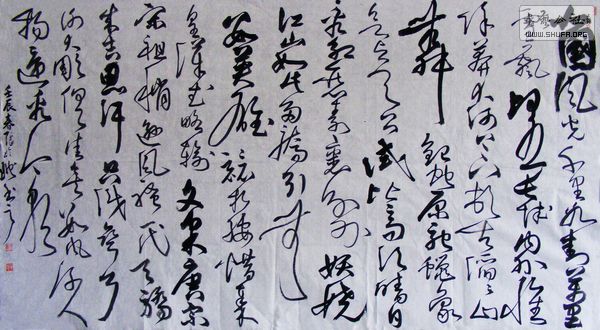 国风光千里冰封万里
雪飘望长城内外惟
余莽莽大河上下顿失滔滔山
舞银蛇原驰蜡象
欲与天公试比高须晴日
看红装素裹分外妖娆
江山如此多娇引无
数英雄竞折腰惜秦
皇汉武略输文采唐宗
宋祖稍逊风骚一代天骄
成吉思汗只识弯弓
射大雕俱往矣数风流人
物还看今朝
壬辰春
WWW.SHUFA.ORG